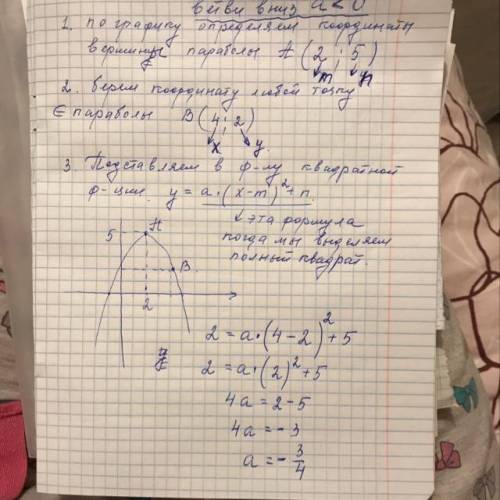 ветви вниз a < 0
1. по графику определяем координаты
вершины параболы A (2 ; 5)
m n
2. берем координату любой точку
∈ параболы B (4 ; 2)
x y
3. Подставляем в ф-лу квадратной
ф-ции y = a·(x-m)²+n.
эта формула
когда мы выделяем
полный квадрат.
A
5
B
2
2 = a·(4-2)²+5
2 = a·(2)²+5
4a = 2-5
4a = -3
a = -3/4